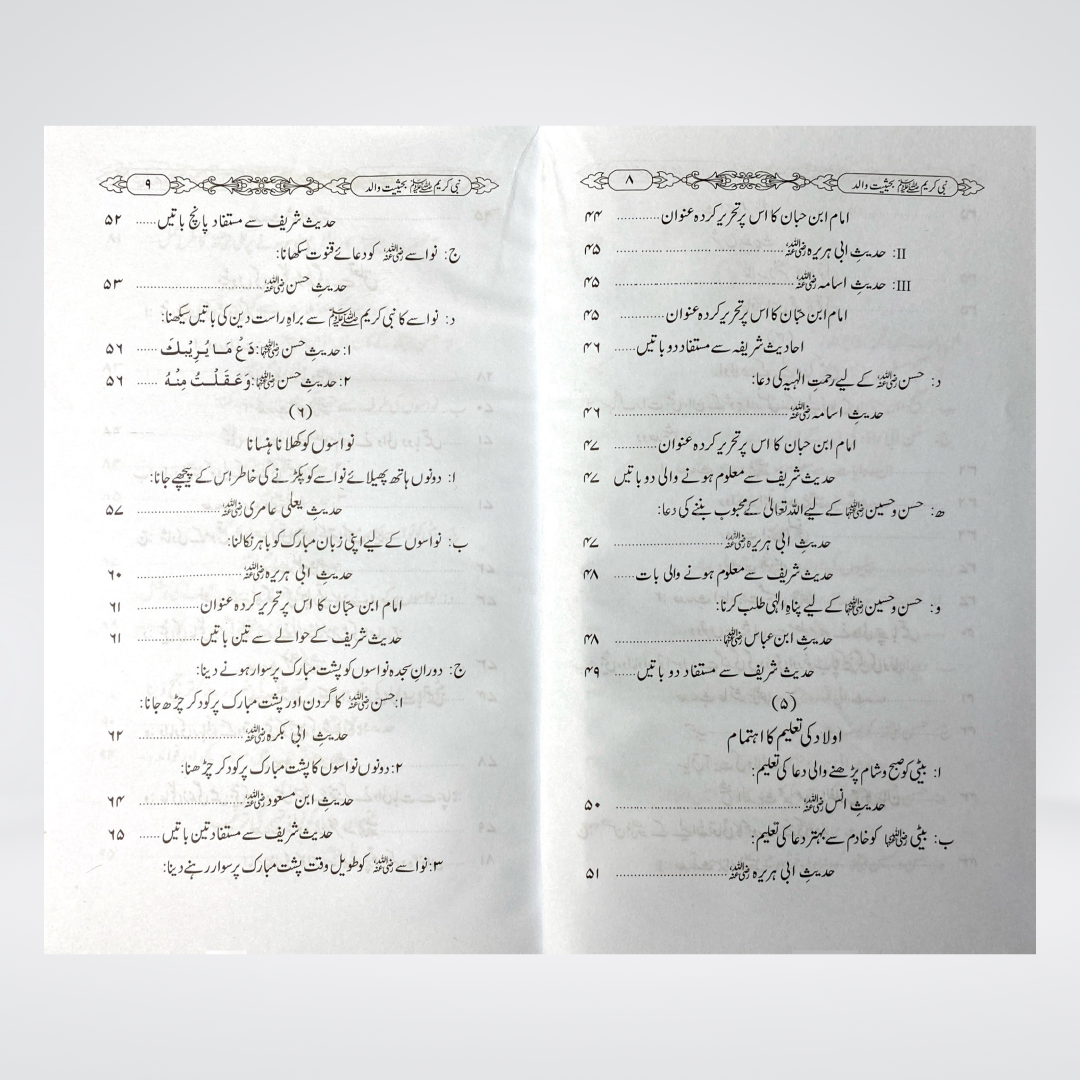 نبی کریم ﷺ بحیثیت والد ۸
امام ابن حبان کا اس پر تحریر کردہ عنوان ............ ۴۴
II: حدیثِ ابی ہریرہ رضی اللہ عنہ ............ ۴۵
III: حدیثِ اسامہ رضی اللہ عنہ ............ ۴۵
امام ابن حبّان کا اس پر تحریر کردہ عنوان ............ ۴۵
احادیث شریفہ سے مستفاد دو باتیں ...... ۴۶
د: حسن رضی اللہ عنہ کے لیے رحمتِ الٰہیہ کی دعا:
حدیثِ اسامہ رضی اللہ عنہ ............ ۴۶
امام ابن حبان کا اس پر تحریر کردہ عنوان ............ ۴۷
حدیث شریف سے معلوم ہونے والی دو باتیں ۴۷
ھ: حسن وحسین رضی اللہ عنہما کے لیے اللہ تعالیٰ کے محبوب بننے کی دعا:
حدیثِ ابی ہریرہ رضی اللہ عنہ ............ ۴۷
حدیث شریف سے معلوم ہونے والی بات ...... ۴۸
و: حسن وحسین رضی اللہ عنہما کے لیے پناہِ الٰہی طلب کرنا:
حدیثِ ابن عباس رضی اللہ عنہما ............ ۴۸
حدیث شریف سے مستفاد دو باتیں ...... ۴۹
(۵)
اولاد کی تعلیم کا اہتمام
ا: بیٹی کو صبح و شام پڑھنے والی دعا کی تعلیم:
حدیثِ انس رضی اللہ عنہ ............ ۵۰
ب: بیٹی رضی اللہ عنہا کو خادم سے بہتر دعا کی تعلیم:
حدیثِ ابی ہریرہ رضی اللہ عنہ ............ ۵۱
نبی کریم ﷺ بحیثیت والد ۹
حدیث شریف سے مستفاد پانچ باتیں ...... ۵۲
ج: نواسے رضی اللہ عنہ کو دعائے قنوت سکھانا:
حدیثِ حسن رضی اللہ عنہ ............ ۵۳
د: نواسے کا نبی کریم ﷺ سے براہِ راست دین کی باتیں سیکھنا:
۱: حدیثِ حسن رضی اللہ عنہما: دَعْ مَا یُرِیْبُكَ ...... ۵۶
۲: حدیثِ حسن رضی اللہ عنہما: وَعَقَلْتُ مِنْهُ ...... ۵۶
(۶)
نواسوں کو کھلانا ہنسانا
ا: دونوں ہاتھ پھیلائے نواسے کو پکڑنے کی خاطر اس کے پیچھے جانا:
حدیثِ یعلی عامری رضی اللہ عنہ ............ ۵۷
ب: نواسوں کے لیے اپنی زبان مبارک کو باہر نکالنا:
حدیثِ ابی ہریرہ رضی اللہ عنہ ............ ۶۰
امام ابن حبّان کا اس پر تحریر کردہ عنوان ............ ۶۱
حدیث شریف کے حوالے سے تین باتیں ............ ۶۱
ج: دورانِ سجدہ نواسوں کو پشت مبارک پر سوار ہونے دینا:
۱: حسن رضی اللہ عنہ کا گردن اور پشت مبارک پر کود کر چڑھ جانا:
حدیثِ ابی بکرہ رضی اللہ عنہ ............ ۶۲
۲: دونوں نواسوں کا پشت مبارک پر کود کر چڑھنا:
حدیثِ ابن مسعود رضی اللہ عنہ ............ ۶۴
حدیث شریف سے مستفاد تین باتیں ...... ۶۵
۳: نواسے رضی اللہ عنہ کو طویل وقت پشت مبارک پر سوار رہنے دینا: